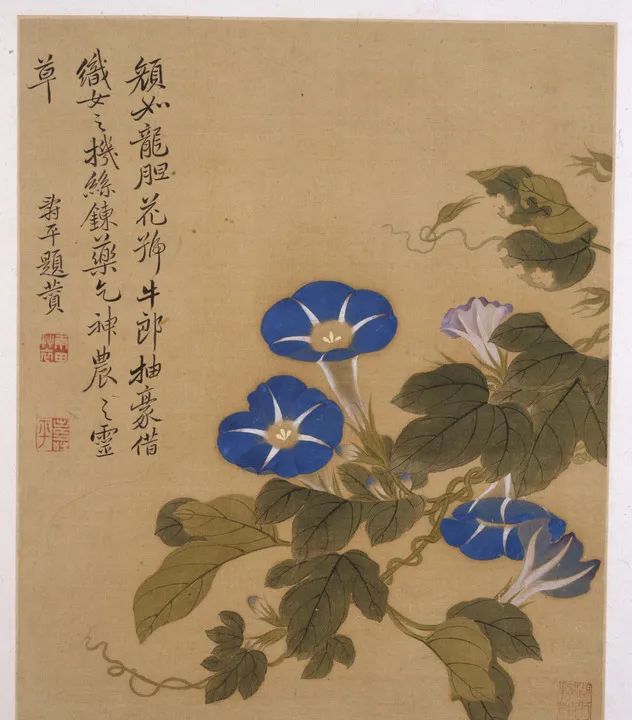 顔如龍胆花號牛郎抽豪借
織女之機絲鍊藥乞神農之靈
草
壽平題贊